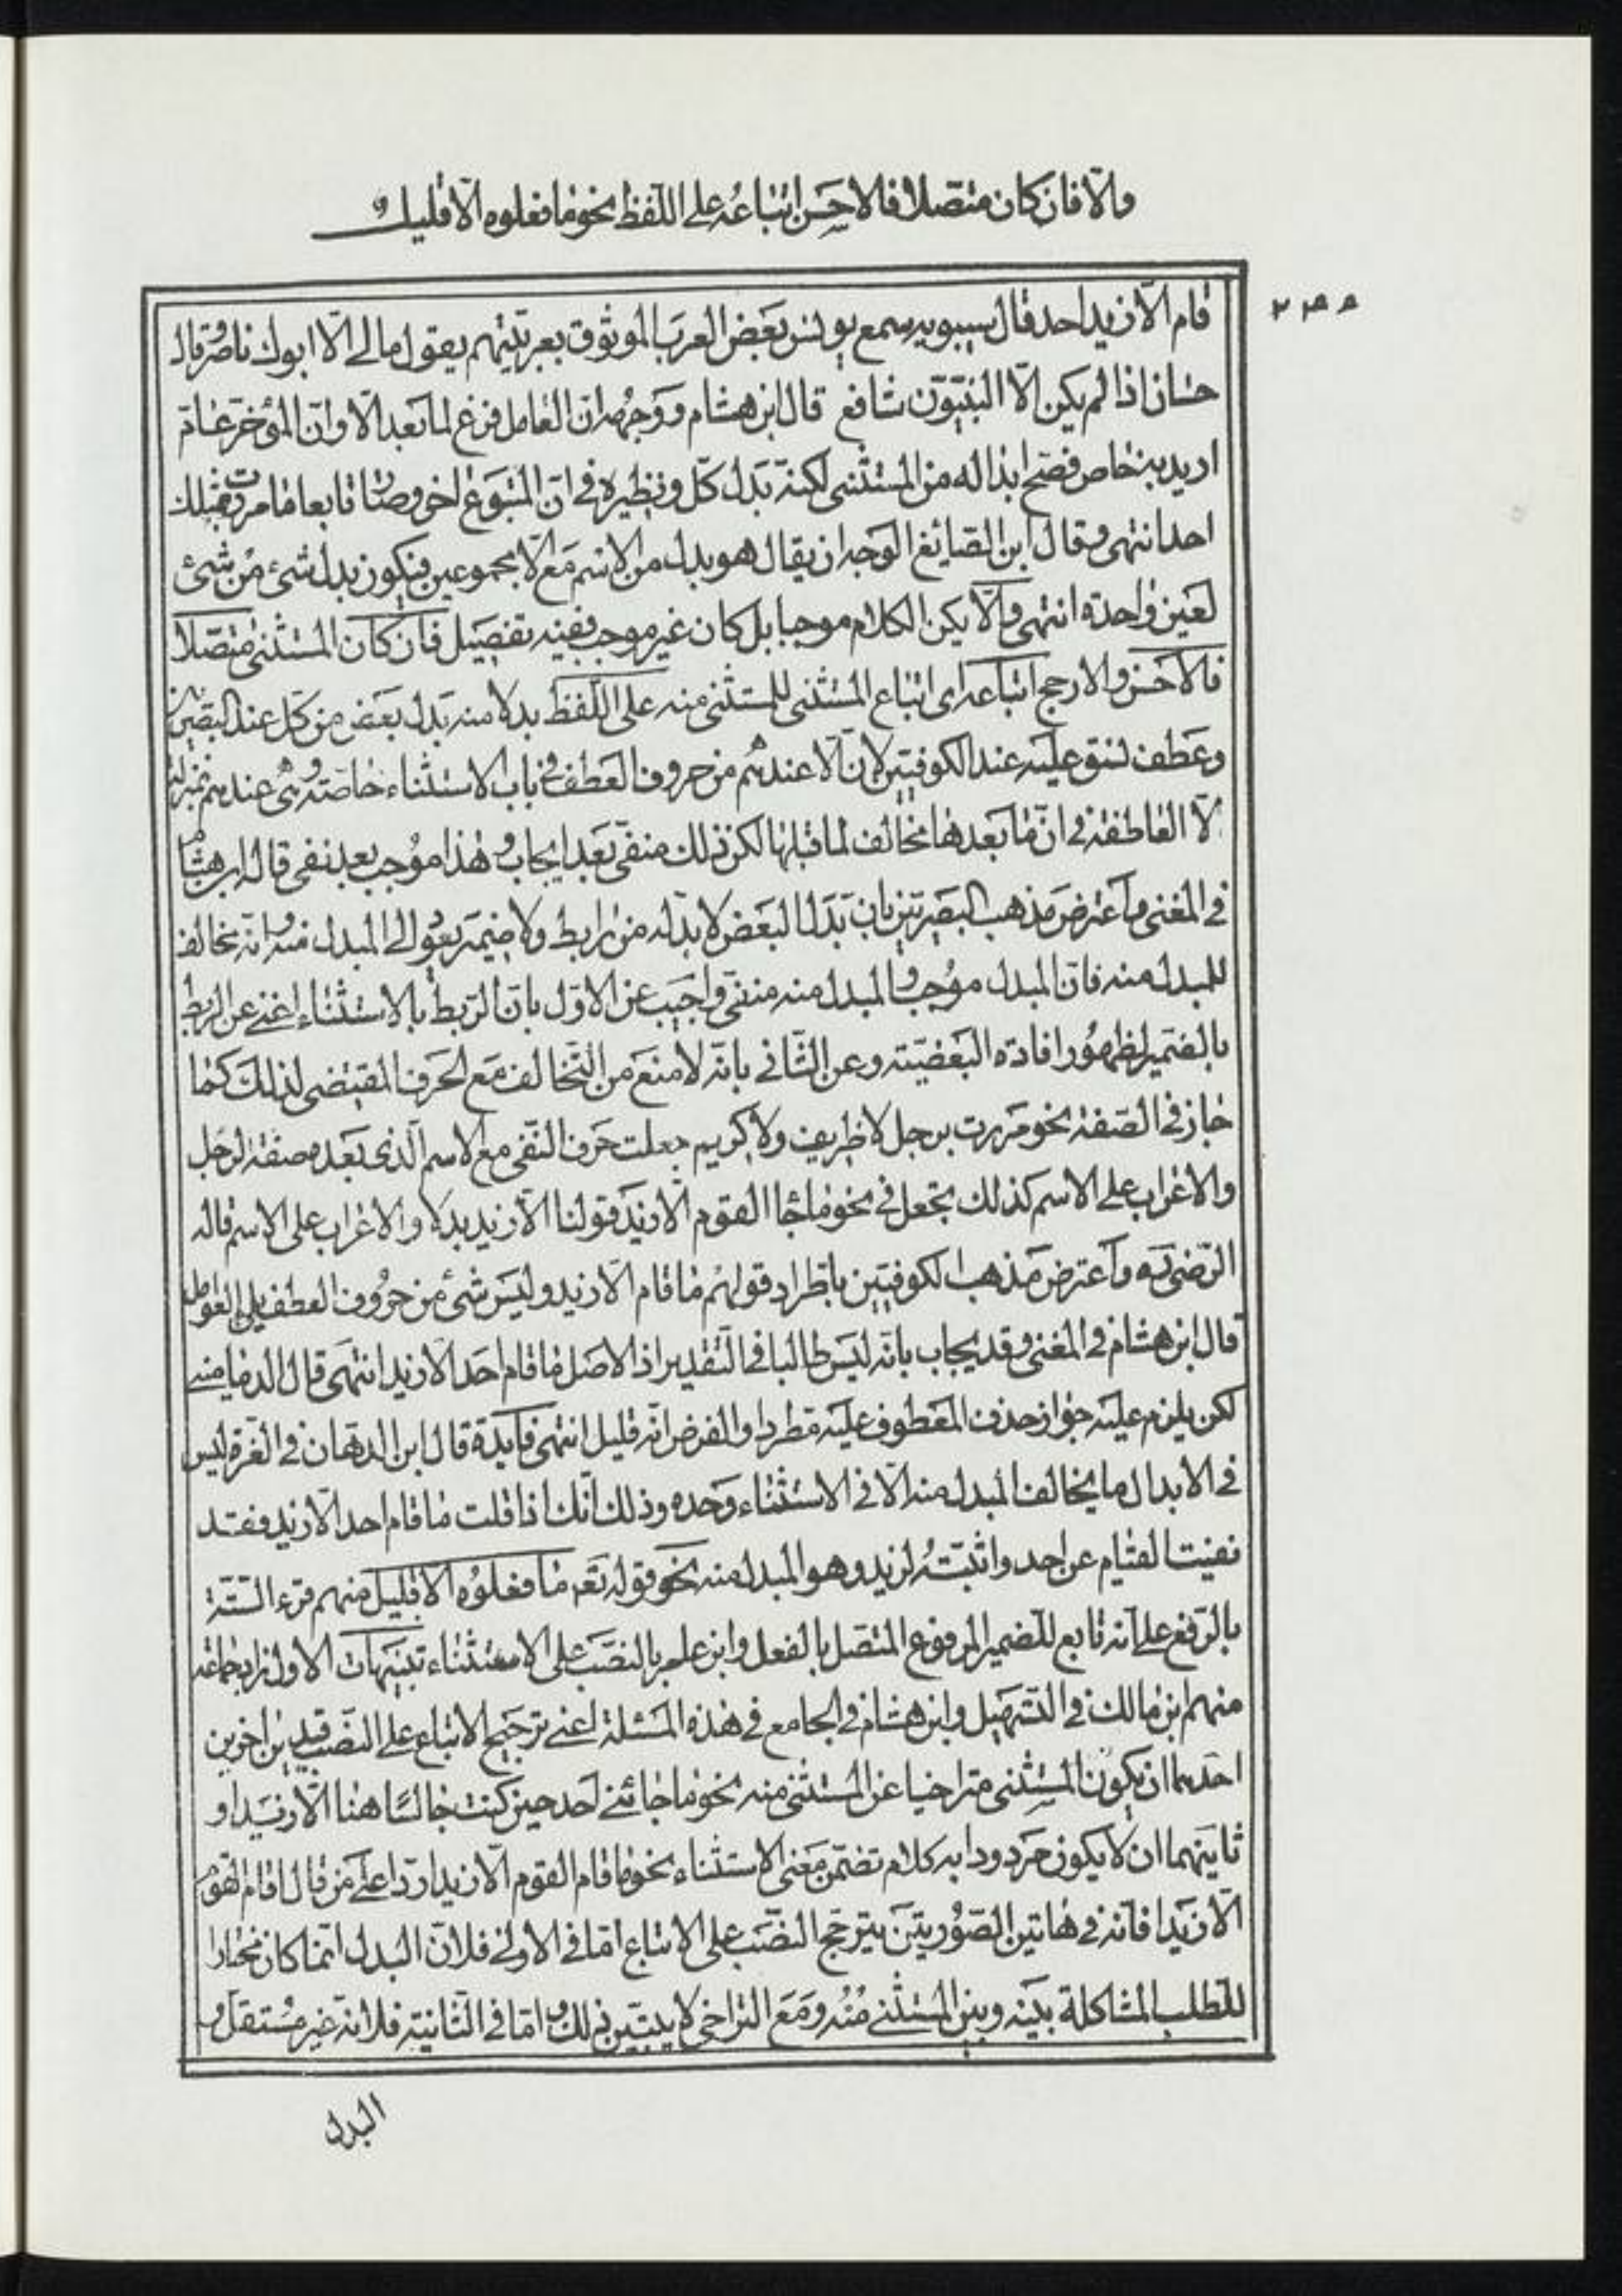 والّا فان كان متّصلا فالاحسن اتباعه على اللّفظ نحو ما فعلوه الّا قليل و
قام الّا زيد احد قال سيبويه سمع يونس بعض العرب الموثوق بعربيّتهم يقول ما لي الّا ابوك ناصر وقال
حسان اذا لم يكن الّا النبيّون شافع قال ابن هشام ووجهه ان العامل فرغ لما بعد الّا وانّ المؤخر عام
اريد به خاص فصح ابداله من المستثنى لكنه بدل كلّ ونظيره في ان المتبوع اخر وصار تابعا ما مررت بمثلك
احد انتهى وقال ابن الصايغ الوجه ان يقال هو بدل من الاسم مع الّا مجموعين فيكون بدل شئ من شئ
لعين واحدة انتهى والّا يكن الكلام موجبا بل كان غير موجب ففيه تفصيل فان كان المستثنى متّصلا
فالاحسن والارجح اتباعه اى اتباع المستثنى للمستثنى منه على اللّفظ بدلا منه بدل بعض من كل عند البصريين
وعطف نسق عليه عند الكوفيّين لانّ الّا عندهم من حروف العطف في باب الاستثناء خاصّة وهي عندهم بمنزلة
لا العاطفة في انّ ما بعدها مخالف لما قبلها لكن ذلك منفى بعد ايجاب وهذا موجب بعد نفى قاله ابن هشام
في المغنى واعترض مذهب البصريّين بان بدل البعض لا بدّ له من رابط ولا ضمير يعود الى المبدل منه وانه مخالف
للمبدل منه فانّ المبدل موجب والمبدل منه منفى واجيب عن الاوّل بانّ الربط بالاستثناء اغنى عن الربط
بالضمير لظهور افادته البعضيّة وعن الثّانى بانه لا منع من التخالف مع الحرف المقتضى لذلك كما
جاز في الصّفة نحو مررت برجل لا ظريف ولا كريم جعلت حرف النّفى مع الاسم الّذى بعده صفة لرجل
والاعراب على الاسم كذلك تجعل في نحو ما جاء القوم الّا زيد قولنا الّا زيد بدلا والاعراب على الاسم قاله
الرّضى ره واعترض مذهب الكوفيّين باطّراد قولهم ما قام الّا زيد وليس شئ من حروف العطف يلى العوامل
قال ابن هشام في المغنى وقد يجاب بانه ليس طالبا في التقدير اذ الاصل ما قام احد الّا زيد انتهى قال الدمامينى
لكن يلزم عليه جواز حذف المعطوف عليه مطردا والفرض انّه قليل انتهى فايدة قال ابن الدهان في الغرة ليس
في الابدال ما يخالف المبدل منه الّا في الاستثناء وحده وذلك انّك اذا قلت ما قام احد الّا زيد فقد
نفيت القيام عن احد واثبتّه لزيد وهو المبدل منه نحو قوله تعه ما فعلوه الّا قليل منهم قرء السّتة
بالرّفع على انه تابع للضمير المرفوع المتصل بالفعل وابن عامر بالنصب على الاستثناء تنبيهات الاول زاد جماعة
منهم ابن مالك في التّسهيل وابن هشام في الجامع في هذه المسئلة اعنى ترجيح الاتباع على النصب قيدين اخرين
احدهما ان يكون المستثنى متراخيا عن المستثنى منه نحو ما جائنى احد حين كنت جالسا هنا الّا زيدا و
ثانيهما ان لا يكون مردودا به كلام تضمن معنى الاستثناء نحو ما قام القوم الّا زيدا ردا على من قال اقام القوم
الّا زيدا فانّه في هاتين الصّورتين يترجّح النصب على الاتباع امّا في الاولى فلانّ البدل انما كان مختارا
للطلب المشاكلة بينه وبين المستثنى منه ومع التراخى لا يتبيّن ذلك و امّا في الثّانية فلانّه غير مستقل و
البدل